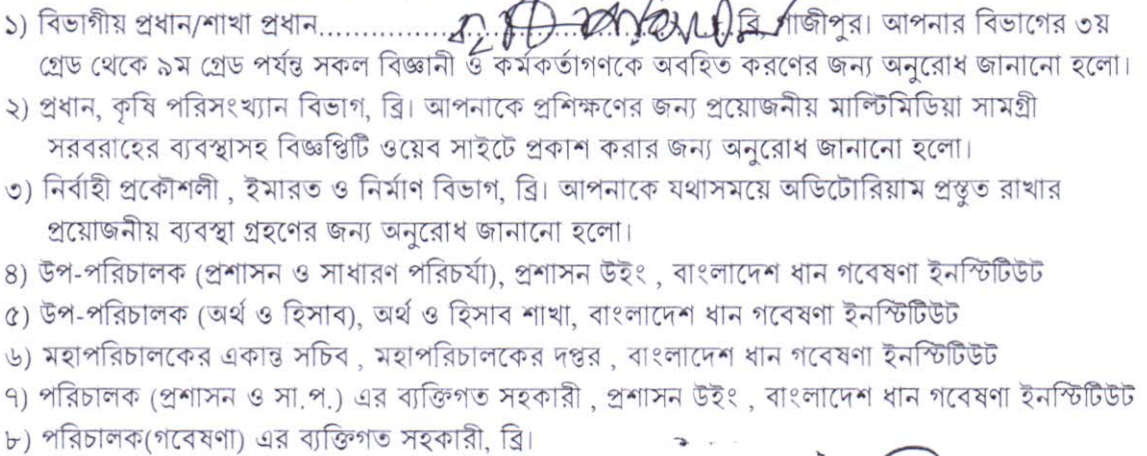 ১) বিভাগীয় প্রধান/শাখা প্রধান.......................................ব্রি, গাজীপুর। আপনার বিভাগের ৩য়
গ্রেড থেকে ৯ম গ্রেড পর্যন্ত সকল বিজ্ঞানী ও কর্মকর্তাগণকে অবহিত করণের জন্য অনুরোধ জানানো হলো।
২) প্রধান, কৃষি পরিসংখ্যান বিভাগ, ব্রি। আপনাকে প্রশিক্ষণের জন্য প্রয়োজনীয় মাল্টিমিডিয়া সামগ্রী
সরবরাহের ব্যবস্থাসহ বিজ্ঞপ্তিটি ওয়েব সাইটে প্রকাশ করার জন্য অনুরোধ জানানো হলো।
৩) নির্বাহী প্রকৌশলী , ইমারত ও নির্মাণ বিভাগ, ব্রি। আপনাকে যথাসময়ে অডিটোরিয়াম প্রস্তুত রাখার
প্রয়োজনীয় ব্যবস্থা গ্রহণের জন্য অনুরোধ জানানো হলো।
৪) উপ-পরিচালক (প্রশাসন ও সাধারণ পরিচর্যা), প্রশাসন উইং , বাংলাদেশ ধান গবেষণা ইনস্টিটিউট
৫) উপ-পরিচালক (অর্থ ও হিসাব), অর্থ ও হিসাব শাখা, বাংলাদেশ ধান গবেষণা ইনস্টিটিউট
৬) মহাপরিচালকের একান্ত সচিব , মহাপরিচালকের দপ্তর , বাংলাদেশ ধান গবেষণা ইনস্টিটিউট
৭) পরিচালক (প্রশাসন ও সা.প.) এর ব্যক্তিগত সহকারী , প্রশাসন উইং , বাংলাদেশ ধান গবেষণা ইনস্টিটিউট
৮) পরিচালক(গবেষণা) এর ব্যক্তিগত সহকারী, ব্রি।